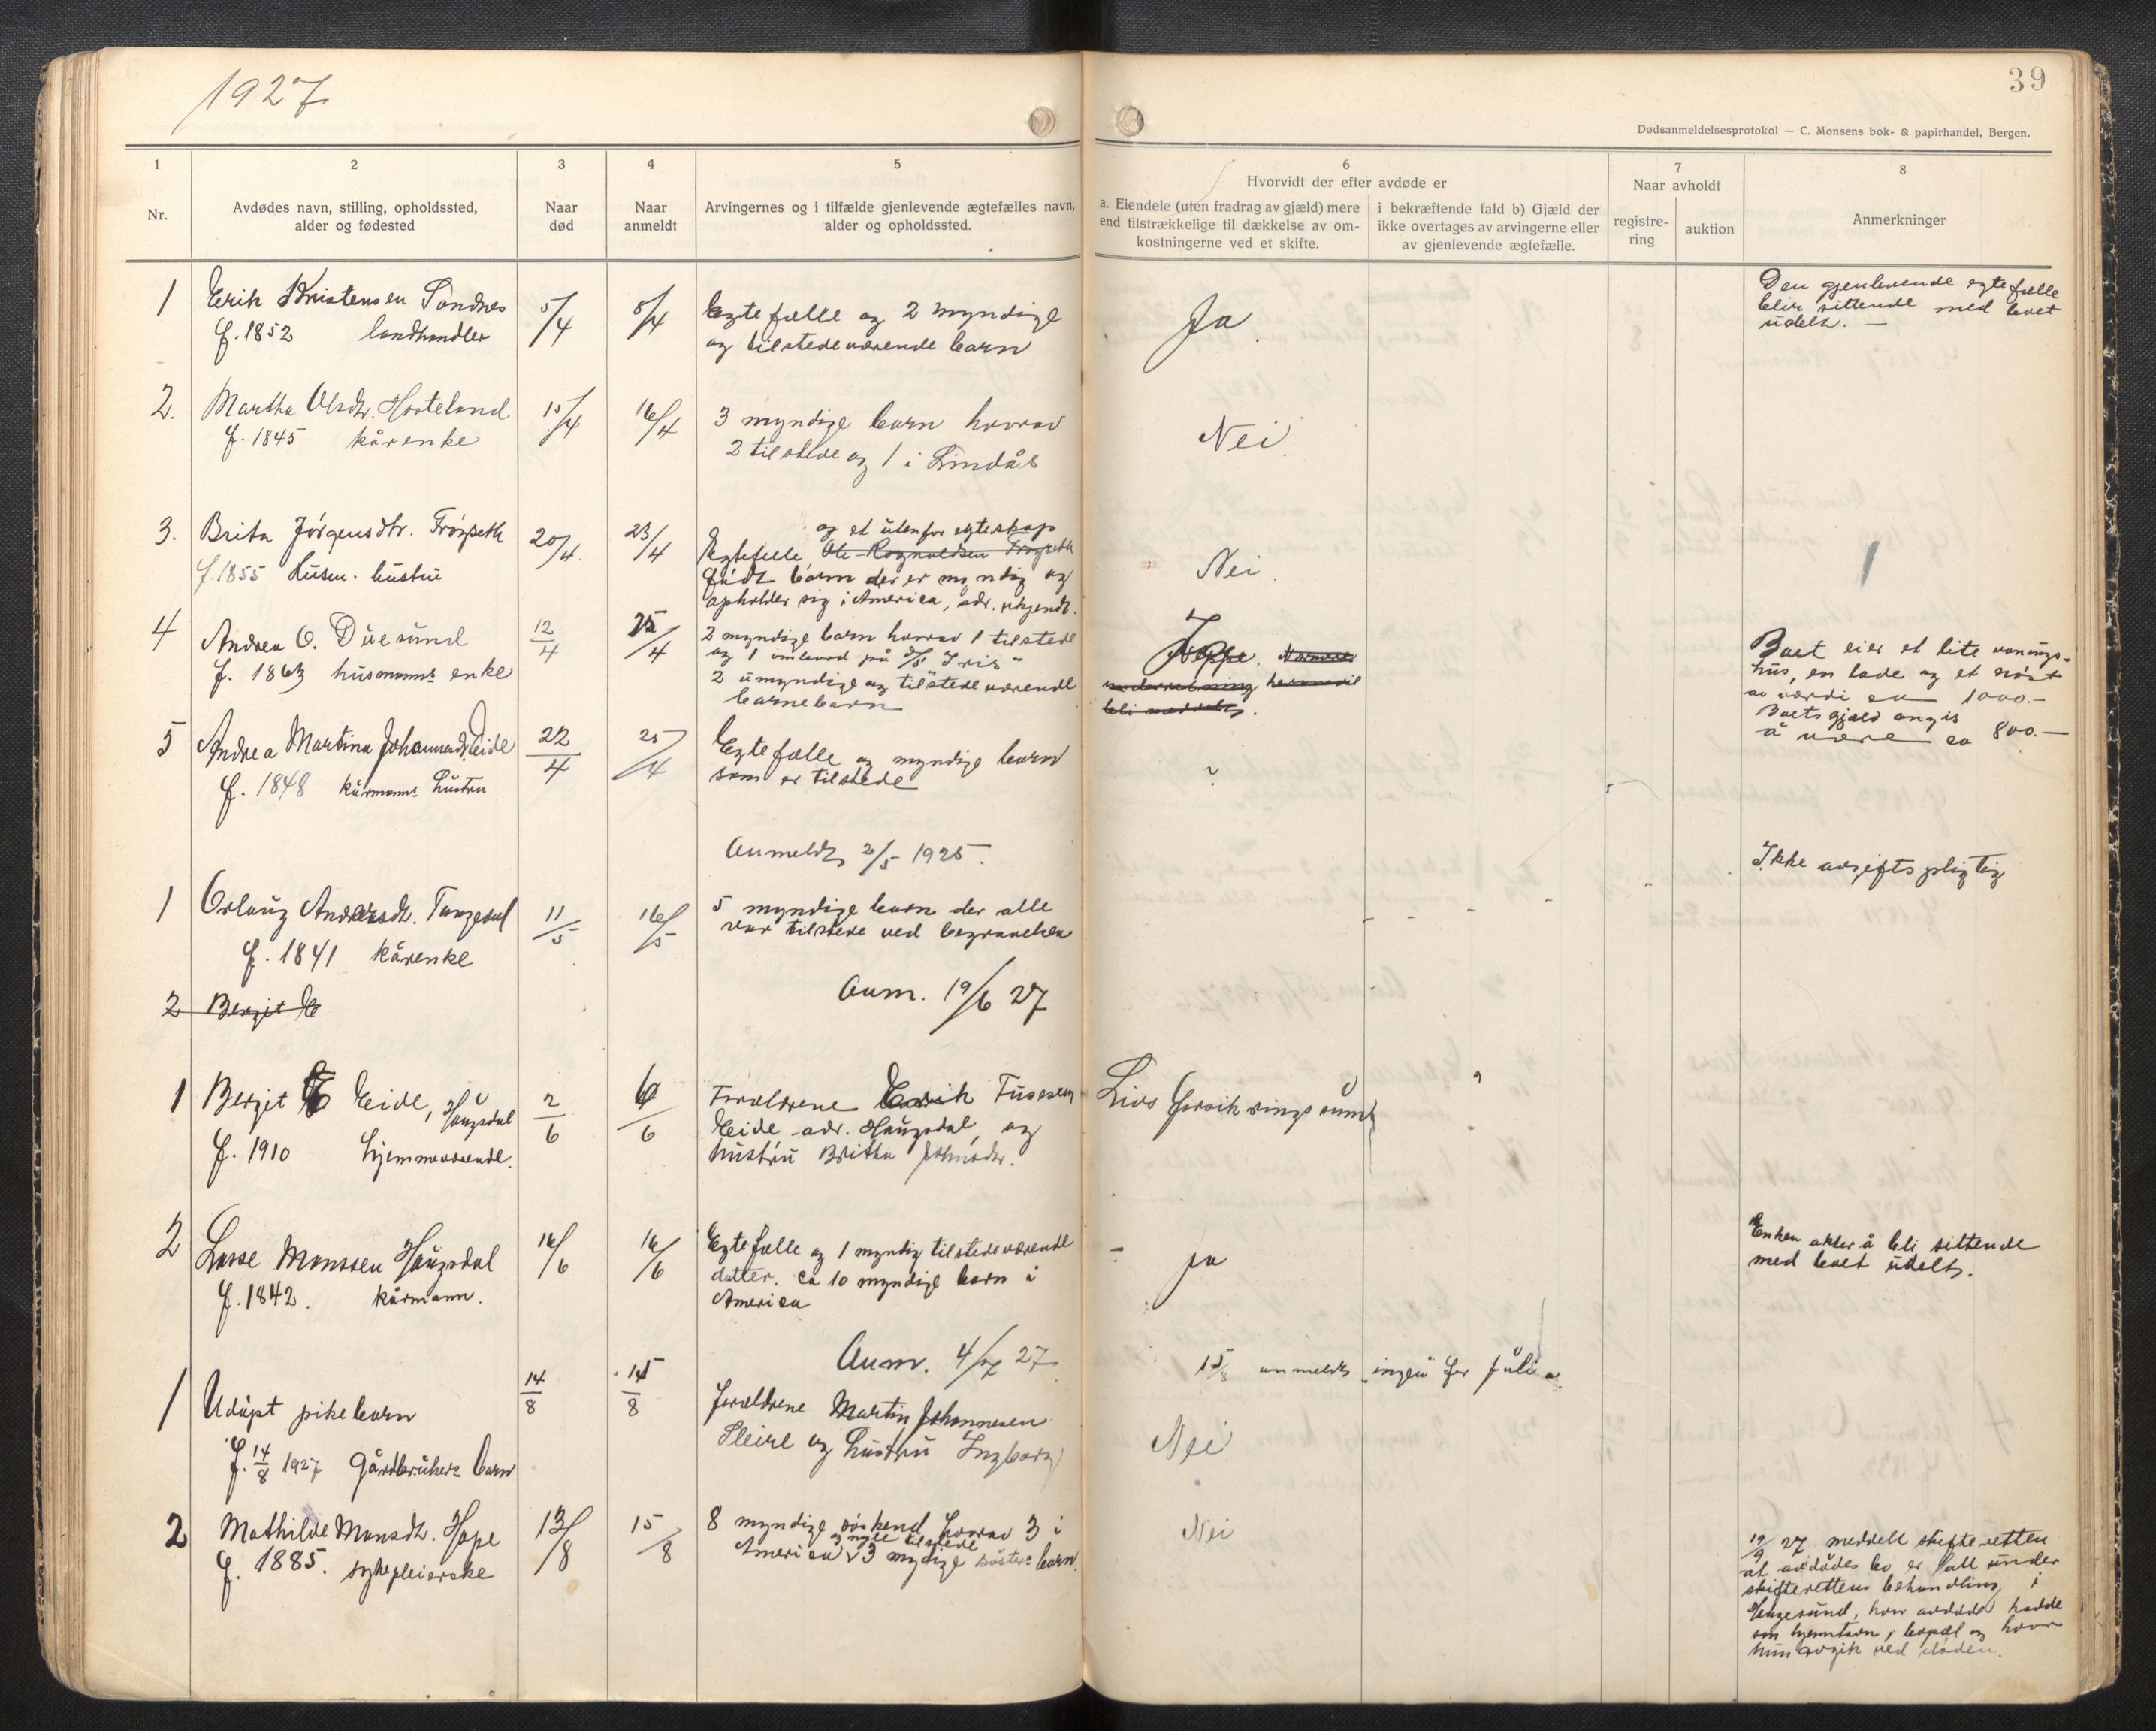 1927
39
Dødsanmeldelsesprotokol — C. Monsens bok- & papirhandel, Bergen.
1
2
3
4
5
6
7
8
Nr.
Avdødes navn, stilling, opholdssted,
alder og fødested
Naar
død
Naar
anmeldt
Arvingernes og i tilfælde gjenlevende ægtefælles navn,
alder og opholdssted.
Hvorvidt der efter avdøde er
a. Eiendele (uten fradrag av gjæld) mere
end tilstrækkelige til dækkelse av om-
kostningerne ved et skifte.
i bekræftende fald b) Gjæld der
ikke overtages av arvingerne eller
av gjenlevende ægtefælle.
Naar avholdt
registre-
ring
auktion
Anmerkninger
1 Erik Kristensen Sandnes 5/4 8/4 Egtefælle og 2 myndige Ja
f. 1852 landhandler og tilstedeværende barn
Den gjenlevende egtefælle
blir sittende med boet
udelt. —
2. Martha Olsdtr. Hosteland 15/4 16/4 3 myndige barn hvorav Nei
f. 1845 kårenke 2 tilstede og 1 i Lindås
3. Brita Jörgensdtr. Frögseth 20/4 23/4 og et utenfor egteskap
Egtefelle Ole Ragnvaldsen Frögseth Nei
f. 1855 husm. hustru födt barn der er myndig og
opholder sig i America, adr. ukjendt.
4 Andrea O. Duesund 12/4 25/4 2 myndige barn hvorav 1 tilstede
f. 1863 husmanns enke og 1 ombord på d/s "Iris"
2 umyndige og tilstedeværende
barnebarn
Neppe. Nærmere
underretning herom vil
bli meddelt.
Boet eier et lite vånings-
hus, en løde og et nöst
av værdi ca 1000.-
Boets gjæld angis
å være ca 800.—
5 Andrea Martina Johannesd. Eide 22/4 25/4 Egtefælle og myndige barn ?
f. 1848 kårmanns hustru som er tilstede
Anmeldt 2/5 1925.
Ikke avgiftspligtig
1 Orlaug Andersdt. Tangedal 11/5 16/5 5 myndige barn der alle
f. 1841 kårenke var tilstede ved begravelsen
Anm. 19/6 27
2 Bergit E
1 Bergit E Eide, Haugsdal 2/6 6/6 Forældrene Erik Fusesen Livsforsikringssum
f. 1910 hjemmeværende. Eide adr. Haugsdal, og
hustru Britha Johnsdtr.
2 Lasse Monssen Haugsdal 16/6 16/6 Egtefælle og 1 myndig tilstedeværende ja
f. 1842. kårmann. datter. ca 10 myndige barn i
America
Enken akter å bli sittende
med boet udelt.
Anm. 4/7 27
15/8 anmeldt ingen for Juli
1 Udöpt pikebarn 14/8 15/8 Forældrene Martin Johannesen Nei
f. 14/8 1927 gårdbrukers barn Sleire og hustru Ingborg
2 Mathilde Monsdt. Hope 13/8 15/8 8 myndige söskend hvorav 3 i Nei
f. 1885. sykepleierske America og nogle tilstede 3 mydige sösters barn.
19/9 27 meddelt skifteretten
at avdödes bo er tatt under
skifterettens behandling i
Haugesund, hvor avdöde hadde
sin hjemstavn, bopæl og hvor
hun avgik ved döden.